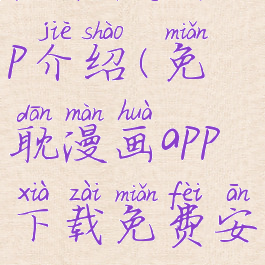 jiè shào miǎn
P介绍(免
dān màn huà
耽漫画app
xià zài miǎn fèi ān
下载免费安